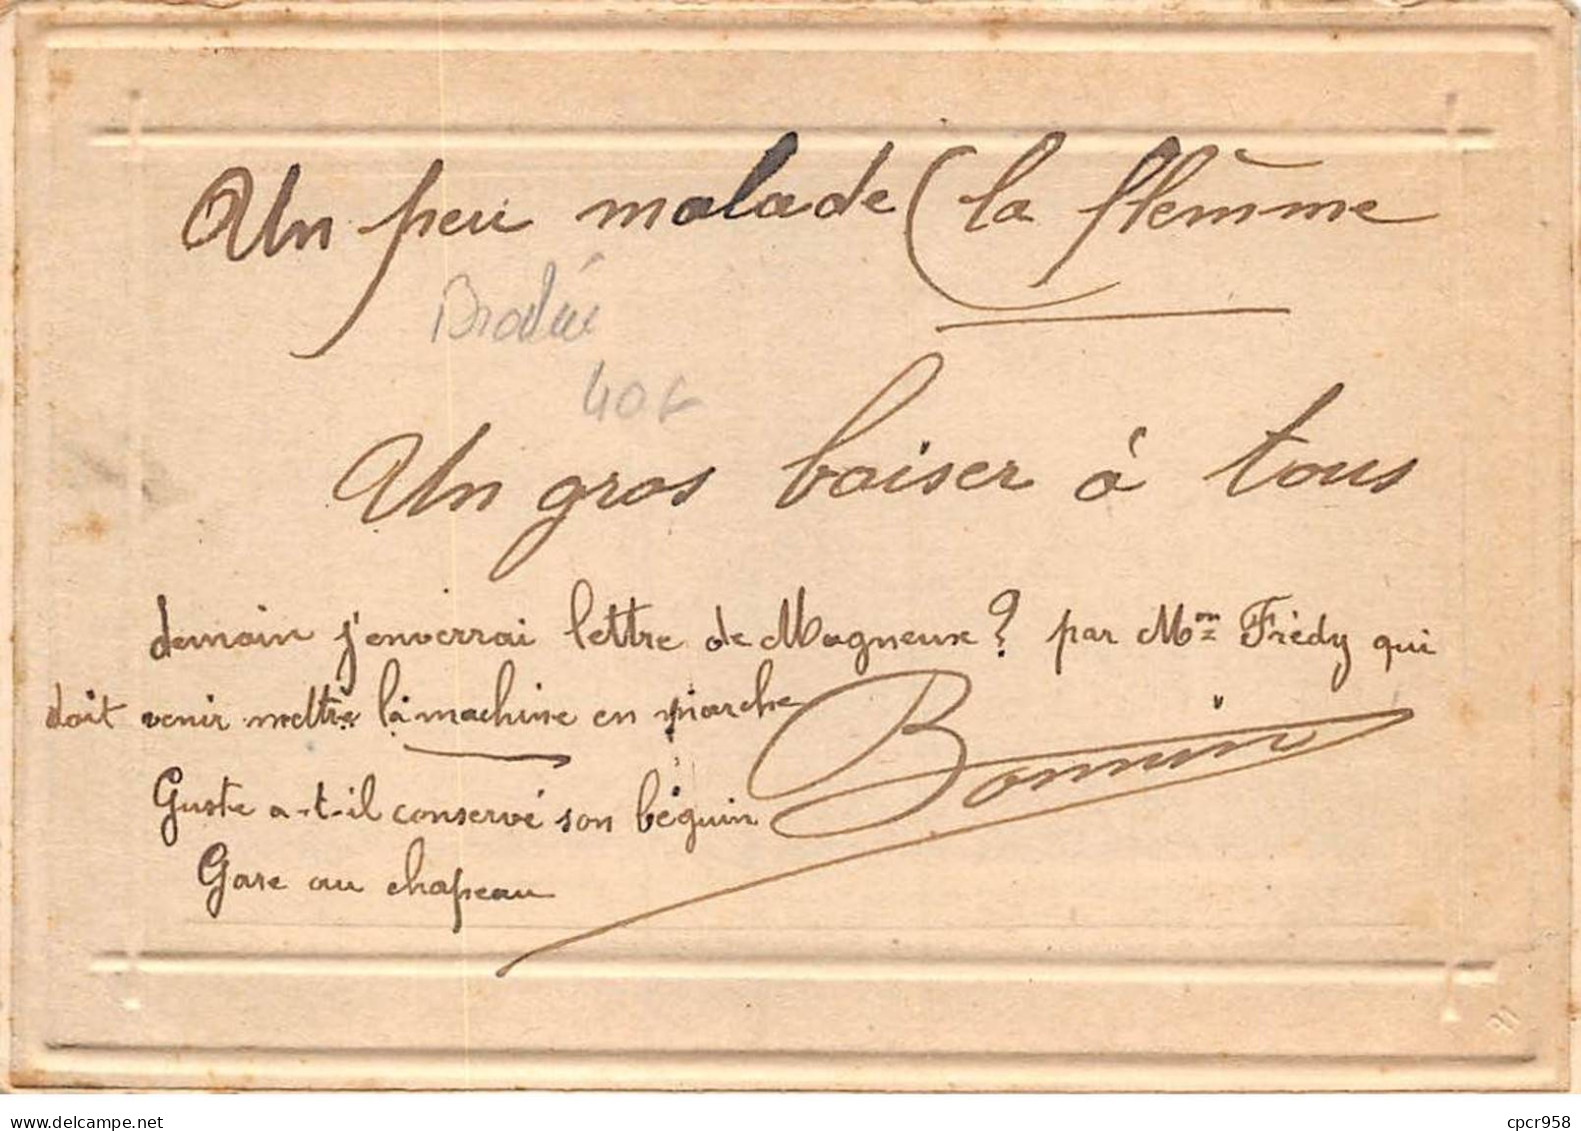 Un peu malade (la flemme
Brodée
40 F
Un gros baiser à tous
demain j'enverrai lettre de Magneux? par Mon Frédy qui
doit venir mettre la machine en marche
Bonnin
Guste a-t-il conservé son béguin
Gare au chapeau
delcampe.net
cpcr958